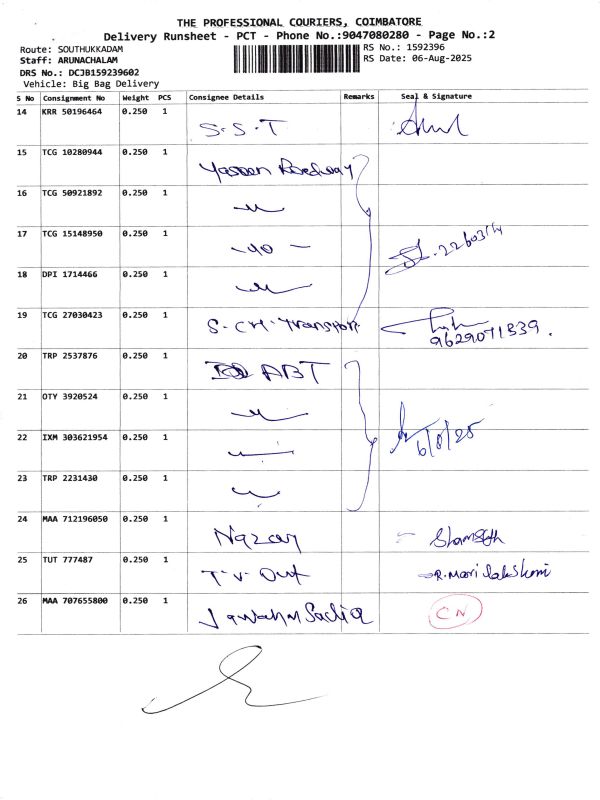 THE PROFESSIONAL COURIERS, COIMBATORE
Delivery Runsheet - PCT - Phone No.:9047080280 - Page No.:2
Route: SOUTHUKKADAM
RS No.: 1592396
Staff: ARUNACHALAM
RS Date: 06-Aug-2025
DRS No.: DCJB159239602
Vehicle: Big Bag Delivery
S No Consignment No Weight PCS Consignee Details Remarks Seal & Signature
14 KRR 50196464 0.250 1 S.S.T
15 TCG 10280944 0.250 1 Yaseen Roadway
16 TCG 50921892 0.250 1
17 TCG 15148950 0.250 1
18 DPI 1714466 0.250 1
19 TCG 27030423 0.250 1 S.CM.Transport 9629071339.
20 TRP 2537876 0.250 1 ABT
21 OTY 3920524 0.250 1
22 IXM 303621954 0.250 1 6/8/25
23 TRP 2231430 0.250 1
24 MAA 712196050 0.250 1
25 TUT 777487 0.250 1 T.V. Out R.Mari lakshmi
26 MAA 707655800 0.250 1 CN